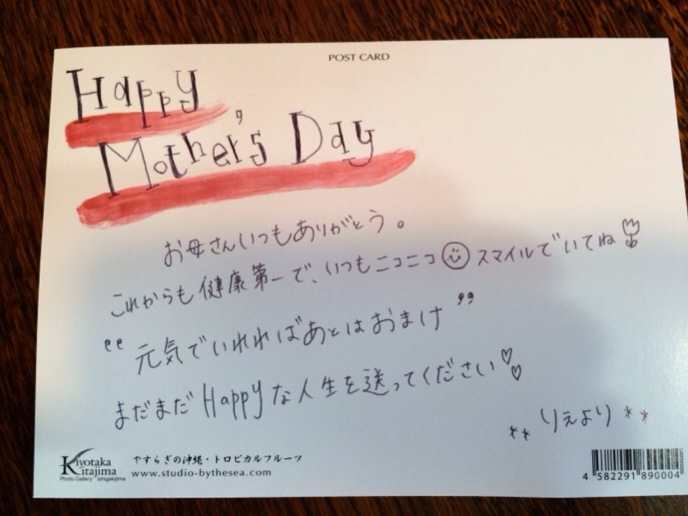 POST CARD
Happy
Mother's Day
お母さんいつもありがとう。
これからも健康第一で、いつもニコニコ スマイルでいてね
"元気でいれればあとはおまけ"
まだまだHappyな人生を送ってください♡♡
** りえより **
Kiyotaka
Kitajima
Photo Gallery Ishigakijima
やすらぎの沖縄・トロピカルフルーツ
www.studio-bythesea.com
4 582291 890004